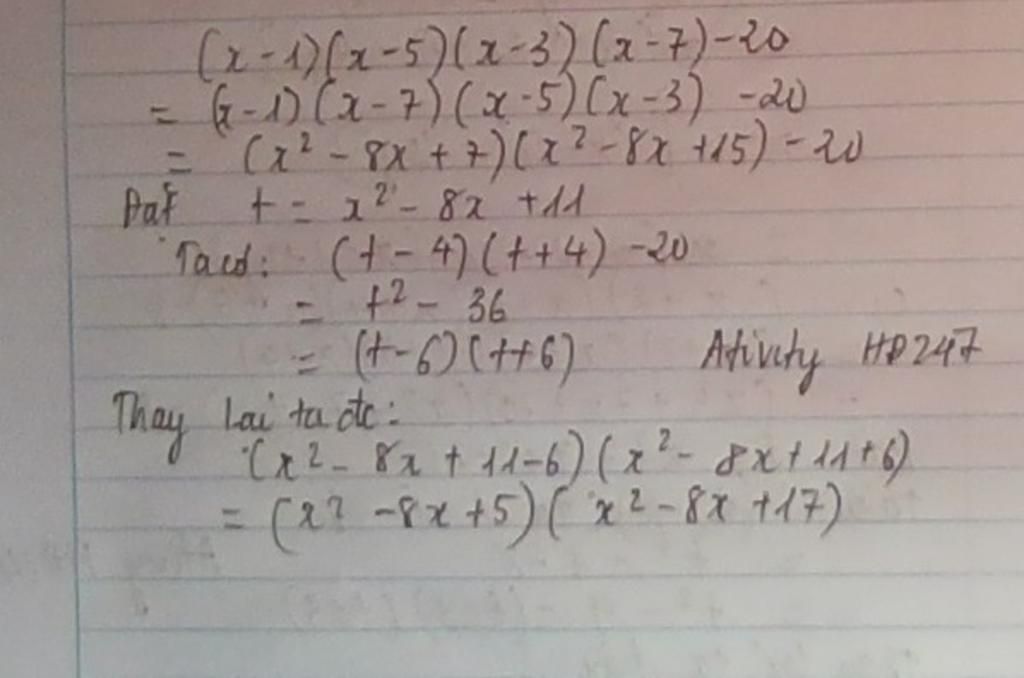 (x-1)(x-5)(x-3)(x-7)-20
= (x-1)(x-7)(x-5)(x-3) -20
= (x² - 8x + 7)(x² - 8x + 15) - 20
Đặt t = x² - 8x + 11
Ta có: (t - 4)(t + 4) - 20
= t² - 36
= (t-6)(t+6) Ativity HD247
Thay lại ta đc:
(x² - 8x + 11-6)(x² - 8x + 11+6)
= (x² - 8x + 5)(x² - 8x + 17)